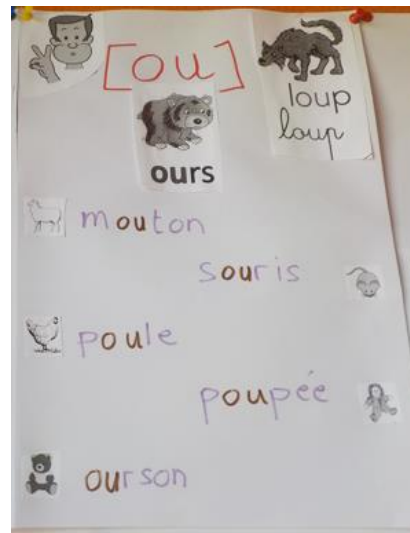 [ou]
loup
loup
ours
mouton
souris
poule
poupée
ourson